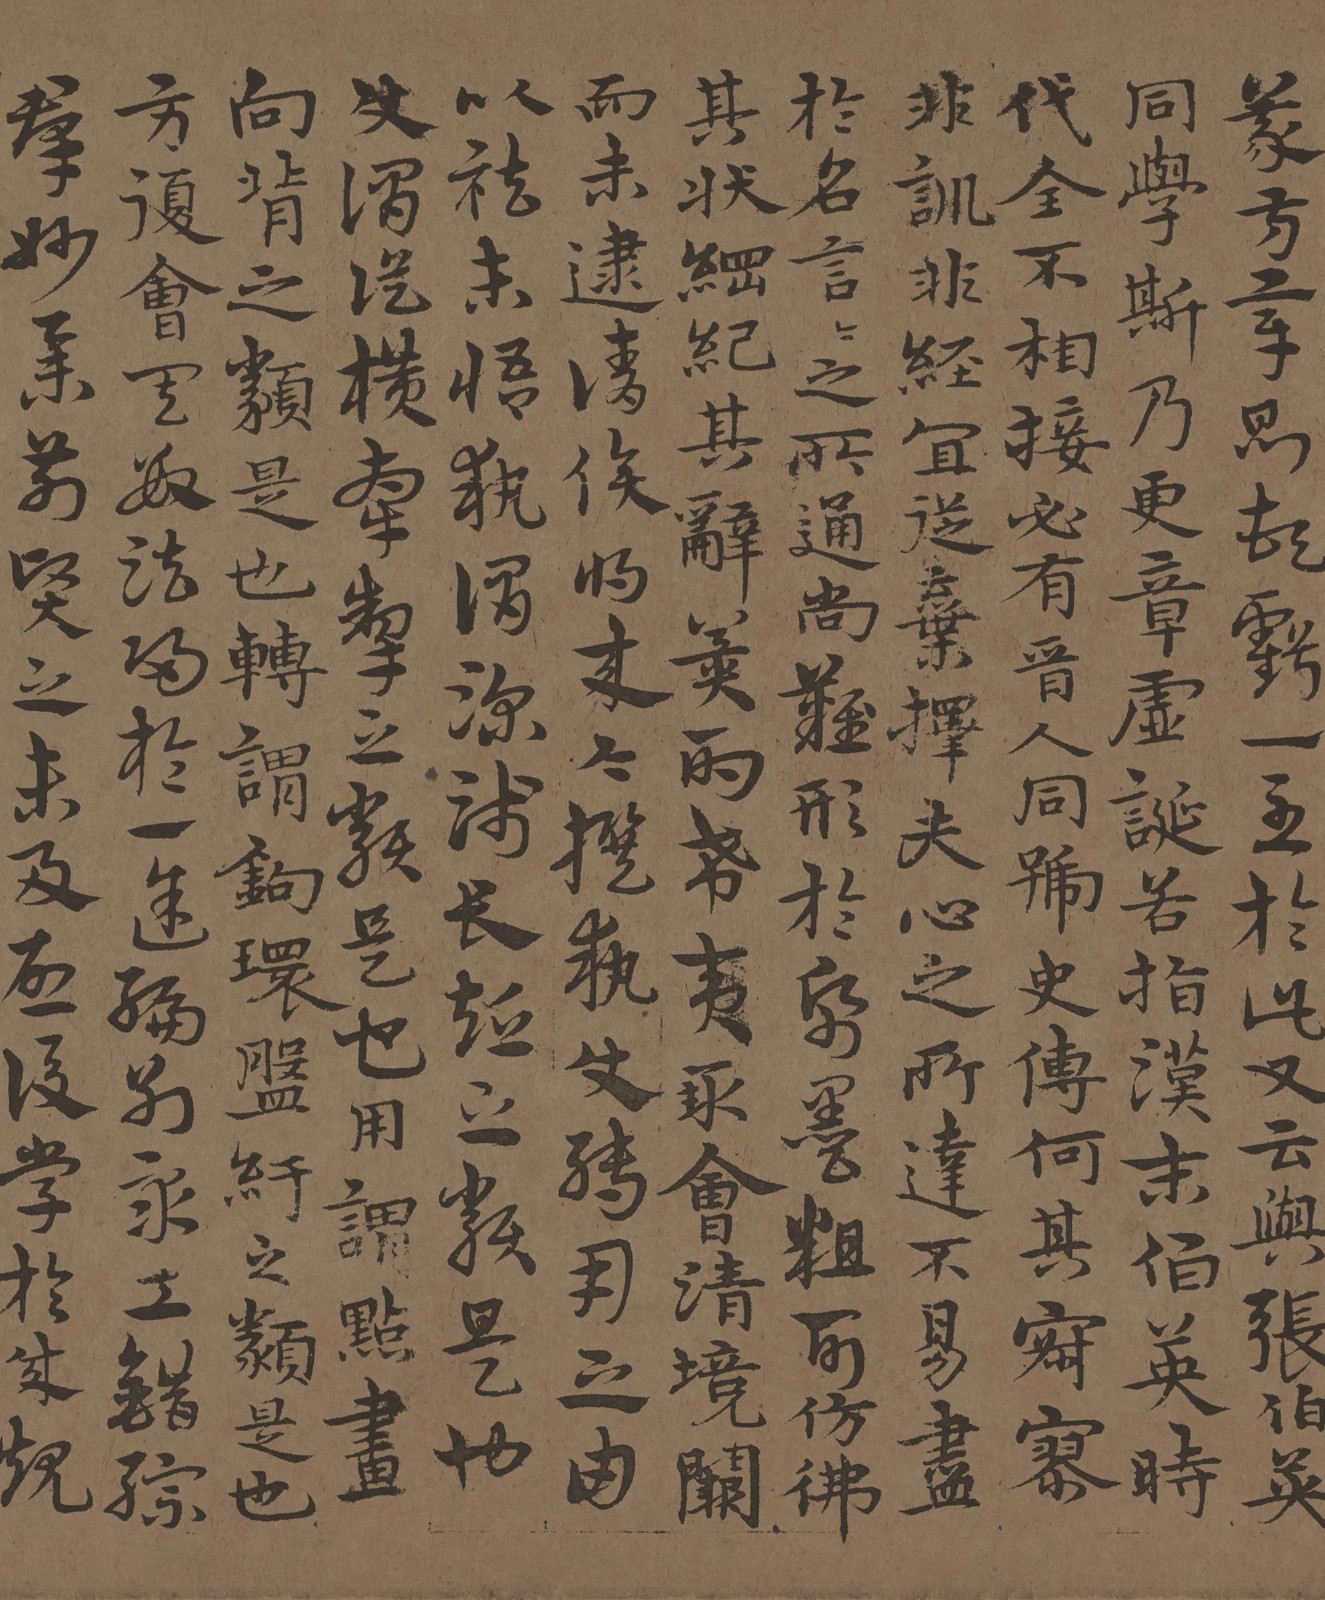 義方章則頓虧一至於此又云與張伯英
同學斯乃更章虛誕若指漢末伯英時
代全不相接必有晉人同號史傳何其寂寥
非訓非經宜從棄擇夫心之所達不易盡
於名言言之所通尚難形於紙墨粗可仿彿
其狀綱紀其辭冀酌希夷取會清境闕
而未逮請俟將來今撰執使轉用之由
以祛未悟執謂深淺長短之類是也
使謂從橫牽掣之類是也用謂點畫
向背之類是也轉謂鉤環盤紆之類是也
方復會其數法歸於一途編列衆工錯綜
羣妙舉前賢之未及啟後學於成規